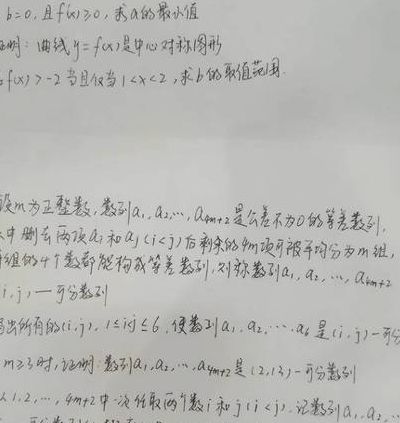 b=0, 且 f'(x)≥0, 求a的最小值
证明: 曲线 y=f(x)是中心对称图形
f(x)>-2 当且仅当 1<x<2, 求b的取值范围.
设m为正整数, 数列a₁, a₂, …, a₄ₘ₊₂是公差不为0的等差数列,
中删去两项aᵢ和aⱼ(i<j)后剩余的4m项可被平均分为m组,
组的4个数都能构成等差数列, 则称数列a₁, a₂, …, a₄ₘ₊₂
i,j)—可分数列
出所有的(i,j), 1≤i<j≤6, 使数列a₁, a₂, …, a₆是(i,j)—可分
m≥3时, 证明: 数列a₁, a₂, …, a₄ₘ₊₂是(2,13)—可分数列
1,2,…,4m+2中一次任取两个数i和j(i<j), 记数列a₁, a₂, …